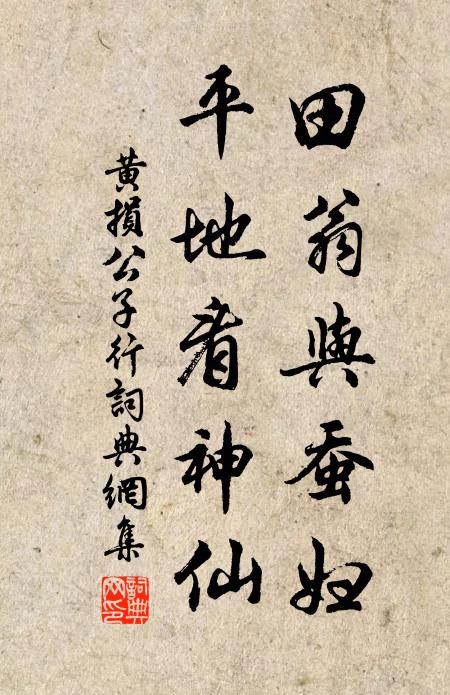 田翁與蚕妇
平地看神仙
黄損公子行詞典網集
詞典網印